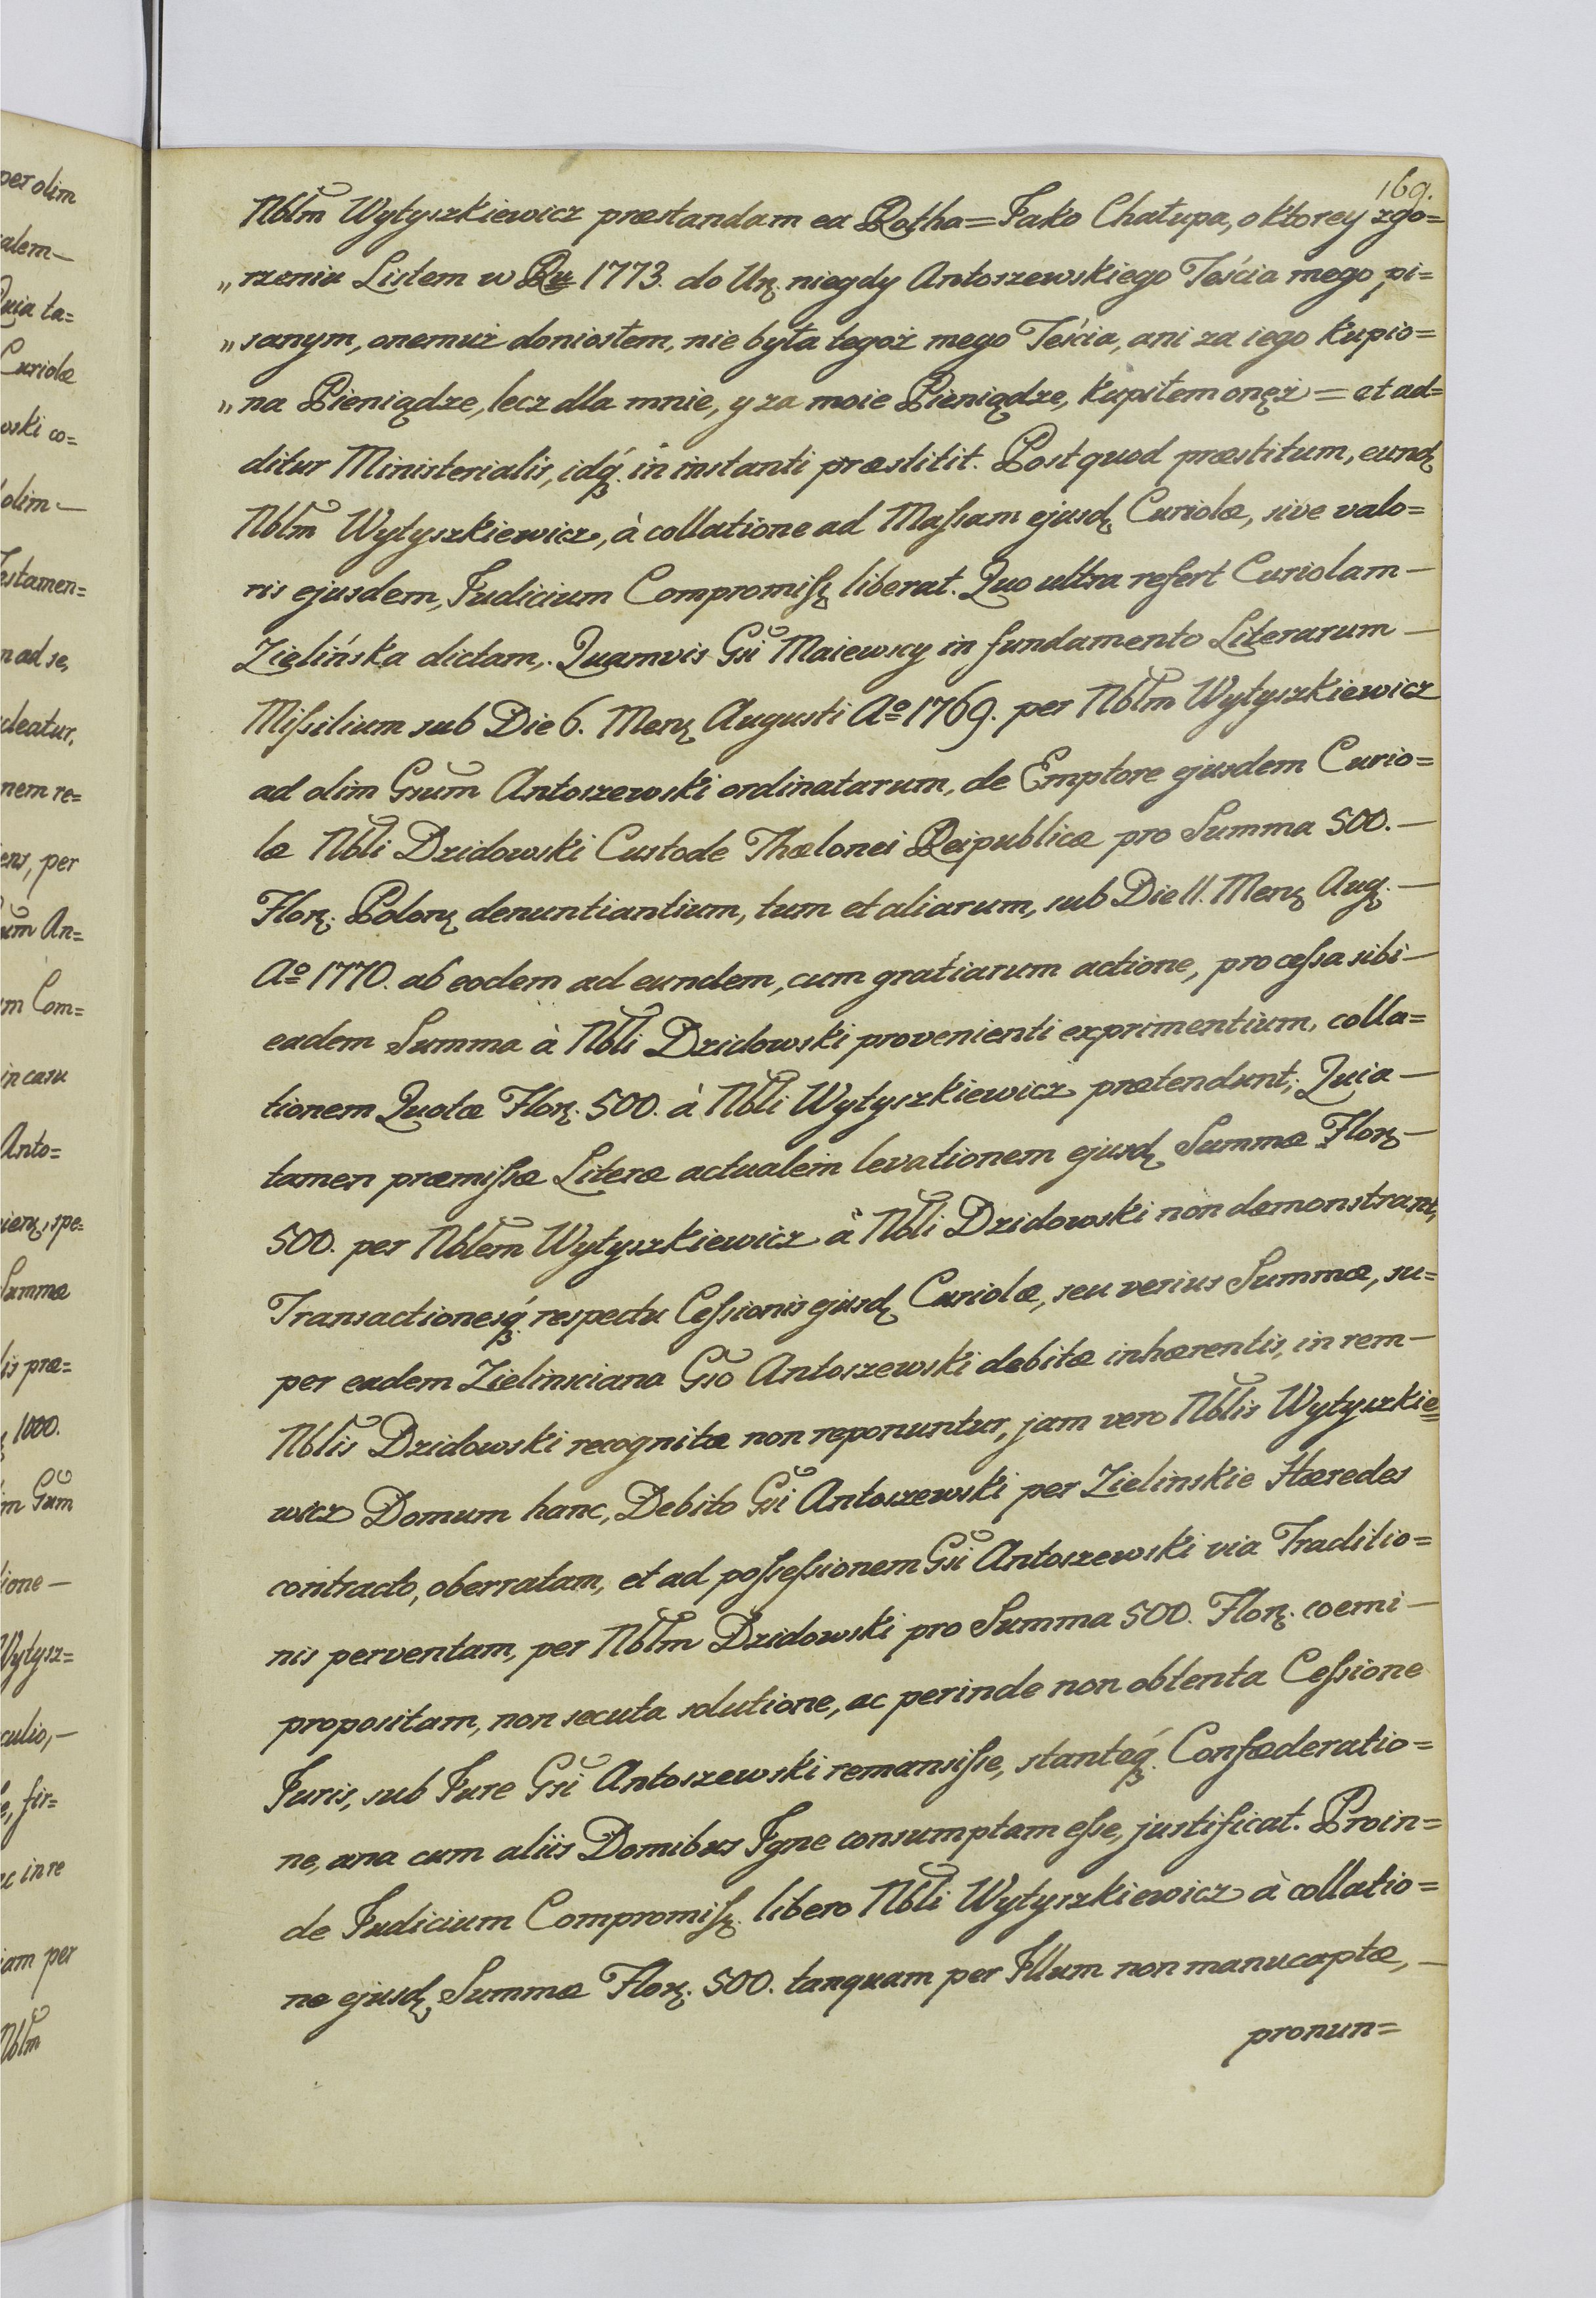 169.
Nblm Wytyszkiewicz præstandam ea Rotha = Jako Chałupa, o ktorey zgo=
„ rzeniu Listem w Ru 1773. do Ur. niegdy Antoszewskiego Teścia mego pi=
„ sanym, onemuż doniosłem, nie była tegoż mego Teścia, ani za iego kupio=
„ na Pieniądze, lecz dla mnie, y za moie Pieniądze, kupiłem onęż = et ad=
ditur Ministerialis, idq́. in instanti præstitit. Post quod præstitum, eund
Nblm Wytyszkiewicz, à collatione ad Maſsam ejusd Curiolæ, sive valo=
ris ejusdem, Judicium Compromiſs liberat. Quo ultra refert Curiolam —
Zielińska dictam, Quamvis Gsi Maiewscy in fundamento Literarum —
Miſsilium sub Die 6. Mens Augusti Aº 1769. per Nblm Wytyszkiewicz
ad olim Gsum Antoszewski ordinatarum, de Emptore ejusdem Curio=
læ Nbli Dzidowski Custode Thælonei Reipublicæ pro Summa 500. —
Flor. Polon denuntiantium, tum et aliarum, sub Die 11. Mens Aug. —
Aº 1770. ab eodem ad eundem, cum gratiarum actione, pro ceſsa sibi —
eadem Summa à Nbli Dzidowski provenienti exprimentium, colla=
tionem Quotæ Flor. 500. à Nbli Wytyszkiewicz prætendunt; Quia —
tamen præmiſsæ Literæ actualem levationem ejusd Summæ Flor —
500. per Nblem Wytyszkiewicz à Nbli Dzidowski non demonstrant,
Transactionesq́. respectu Ceſsionis ejusd Curiolæ, seu verius Summæ, su=
per eadem Zielinsciana Gso Antoszewski debitæ inhærentis, in rem —
Nblis Dzidowski recognitæ non reponuntur, jam vero Nblis Wytyszkie=
wicz Domum hanc, Debito Gsi Antoszewski per Zielinskie Hæredes
contracto, oberratam, et ad poſseſsionem Gsi Antoszewski via Traditio=
nis perventam, per Nblm Dzidowski pro Summa 500. Flor. coemi —
propositam, non secuta solutione, ac perinde non obtenta Ceſsione
Juris, sub Jure Gsi Antoszewski remansiſse, stanteq́. Confæderatio=
ne, una cum aliis Domibus Igne consumptam eſse, justificat. Proin=
de Judicium Compromiſs. libero Nbli Wytyszkiewicz à collatio=
ne ejusd Summæ Flor. 500. tanquam per Illum non manucaptæ, —
pronun=